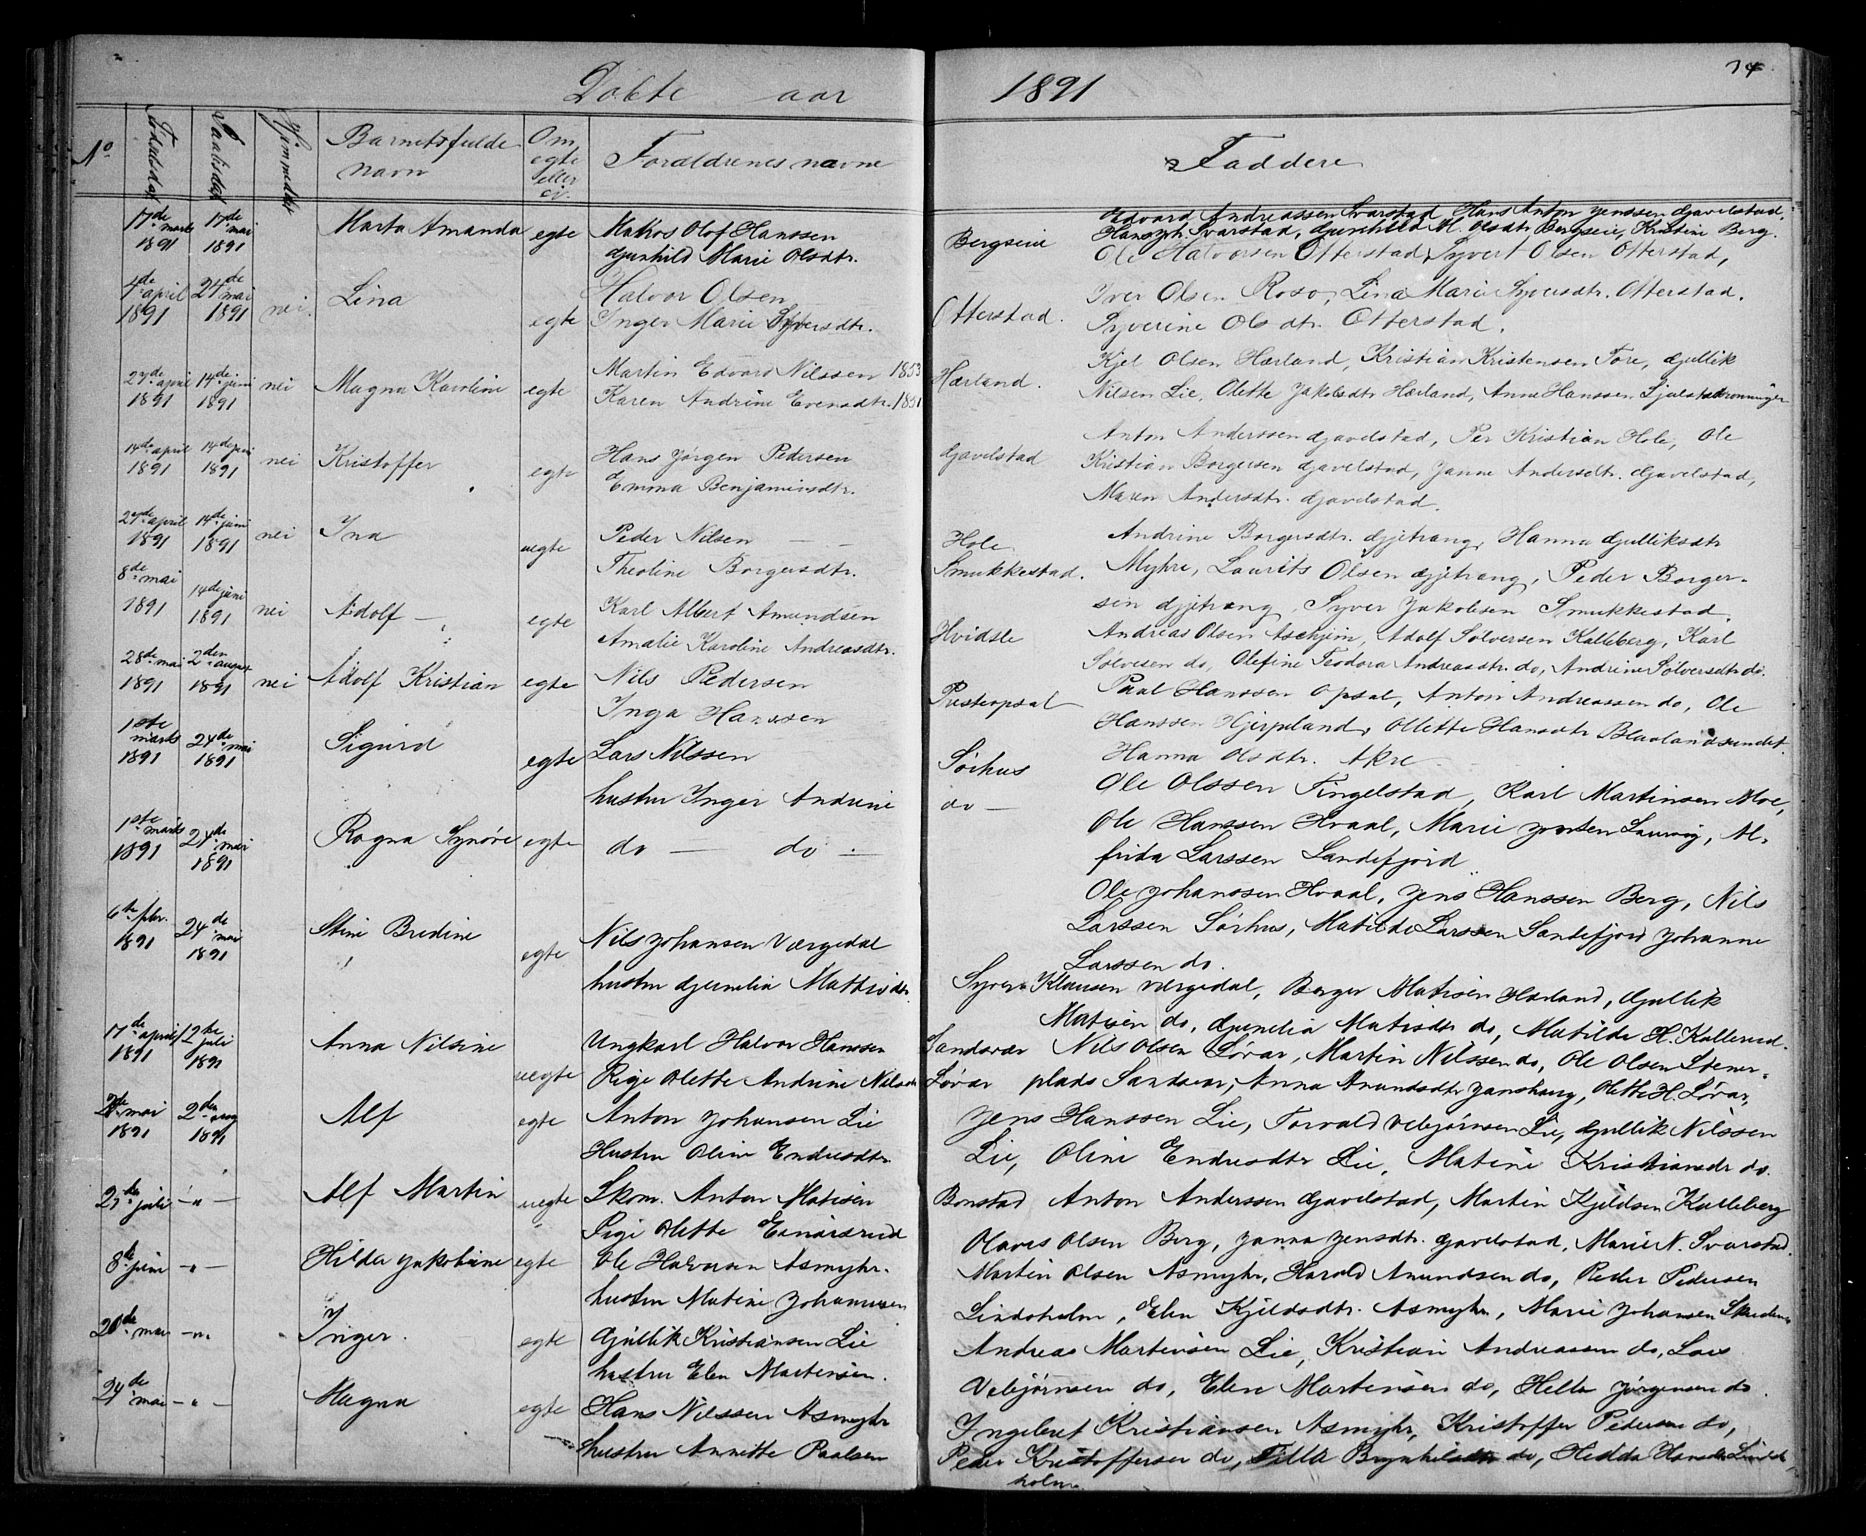 Døbte aar 1891
34
No Fødselsdag Daabsdag Hjemmedøbt Barnets fulde navn Om egte eller ei. Forældrenes navne Faddere
17de marts 1891 17de mai 1891 Marta Amanda egte Makos Olof Hanssen Bergseie Edvard Andreassen Svarstad, Hans Anton Jenssen Gjavelstad,
Gunhild Marie Olsdtr. Svarstad, Gunhild M. Olsdtr Bergseie, Kristine Berg.
4de april 1891 24de mai 1891 nei Lina egte Halvor Olsen Otterstad. Ole Halvorsen Otterstad, Syvert Olsen Otterstad,
Inger Marie Syversdtr. Iver Olsen Roso, Lina Marie Syversdtr. Otterstad.
Syverine Olsdtr. Otterstad.
27de april 1891 14de juni 1891 nei Magna Karoline egte Martin Edvard Nilssen 1853 Hærland. Kjel Olsen Hærland, Kristian Kristensen Fore, Gjullik
Karen Andrine Evensdtr. 1851 Nilsen Lie, Olette Jakobsdtr Hærland, Anne Hanssen
14de april 1891 14de juni 1891 nei Kristoffer egte Hans Jørgen Pedersen Gjavelstad Anton Anderssen Gjavelstad, Per Kristian Hole, Ole
Emma Benjaminsdtr. Kristian Borgersen Gjavelstad, Janne Andersdtr. Gjavelstad,
Maren Andersdtr. Gjavelstad.
27de april 1891 14de juni 1891 nei Ina uegte Peder Nilsen Hole Andrine Borgersdtr. Gjitrang, Hanna Gjulliksdtr
Theoline Borgersdtr. Smukkestad. Myhre, Laurits Olsen Gjitrang, Peder Borger-
sen Gjitrang, Syver Jakobsen Smukkestad.
8de mai 1891 14de juni 1891 nei Adolf egte Karl Albert Amundsen Hvidste Andreas Olsen Aschjem, Adolf Sølversen Kalleberg, Karl
Amalie Karoline Andreasdtr. Sølvesen do, Olefine Teodora Andreasdtr. do, Andrine Sølversdtr do.
28de mai 1891 2den august 1891 nei Adolf Kristian egte Nils Pedersen Presteopsal Paal Hanssen Opsal, Anton Andreassen do, Ole
Inga Hanssen Hanssen Hjerpeland, Olette Hansdtr Blaalandsundet.
Hanna Olsdtr. Akre
1ste marts 1891 24de mai 1891 Sigurd egte Lars Nilssen Sørhus Ole Olssen Tingelstad, Karl Martinsen Moe,
hustru Inger Andrine do — Ole Hanssen Hvaal, Marie Laurvig, Al-
frida Larssen Sandefjord
1ste marts 1891 24de mai 1891 Ragna Synøve egte do — do — Ole Johanssen Hvaal, Jens Hanssen Berg, Nils
Larssen Sørhus, Matilde Larssen Sandefjord Johanne
Larssen do.
6te febr. 1891 24de mai 1891 Stine Bredine egte Nils Johansen Vergedal Syver Klausen Vergedal, Berger Matisen Hærland, Gjullik
hustru Gunelia Mathisdtr. Matisen do, Gunelia Matisdtr do, Matilde H. Kallerud.
17de april 1891 12te juli 1891 Anna Nilsine uegte Ungkarl Halvor Hanssen Sandsvær Nils Olsen Løvar, Martin Nilssen do, Ole Olsen Stener-
Pige Olette Andrine Nilsdtr Løvar plads Sandsvær, Anna Amundsdtr Janshaug, Olette H. Løvar.
2de mai 1891 2den aug 1891 Alf egte Anton Johansen Lie Jens Hanssen Lie, Torvald Vebjørnsen Lie, Gjullik Nilssen
Hustru Oline Endresdtr Lie, Oline Endresdtr Lie, Matine Kristiansdtr do.
juli —"— Alf Martin uegte Skom. Anton Matisen Bonstad Anton Anderssen Gjavelstad, Martin Kjeldsen Kalleberg
Pige Olette Einarsrud Olaves Olsen Berg, Janna Jensdtr. Gjavelstad, Marie N. Svarstad.
8de juni —"— Hilda Jakobine egte Ole Halvorsen Asmyhr. Martin Olsen Asmyhr, Harald Amundsen do, Peder Pedersen
hustru Matine Johannesen Lindeholm, Elen Kjeldsdtr. Asmyhr, Marie Johansen
20de mai —"— Inger. egte Gjullik Kristiansen Lie Andreas Martinsen Lie, Kristian Andreassen do, Lars
hustru Elen Martensen. Vebjørnsen do, Elen Martensen do, Hella Jørgensen do.
24de mai —"— Magna egte Hans Nilssen Asmyhr Ingebret Kristiansen Asmyhr, Kristoffer Pedersen do,
hustru Annette Paalsen Peder Kristoffersen do, Tilla Brynhilsdtr do, Hedda Hansdtr Linde-
holm.